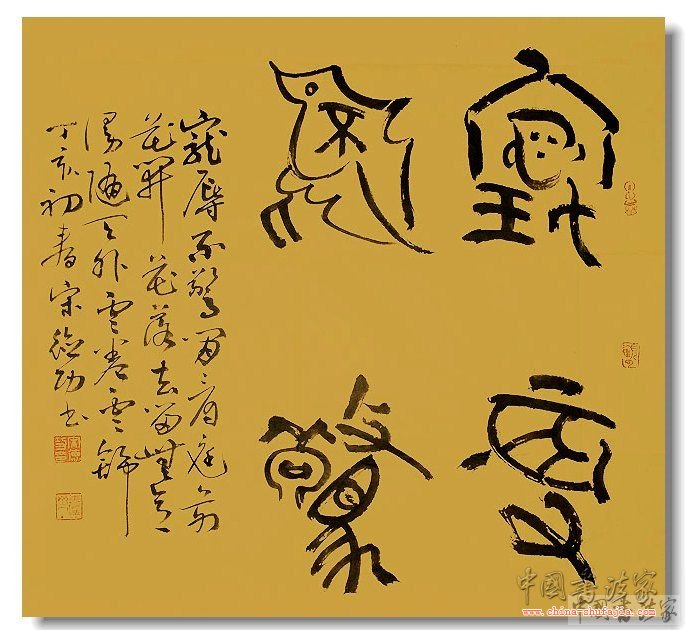 寵辱
不驚
寵辱不驚閒看庭前
花開花落去留無意
漫隨天外雲卷雲舒
丁亥初春宋書
中國書法家
www.china-shufajia.com